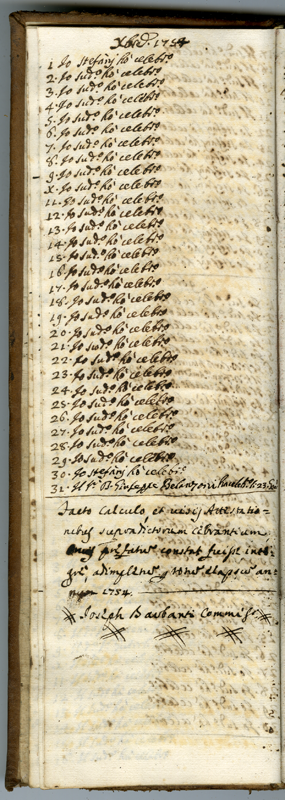 Xbre. 1754
1 Io Stefanj hò celebto
2. Io sudo hò celebto
3. Io sudo hò celebto
4. Io sudo hò celebto
5. Io sudo hò celebto
6. Io sudo hò celebto
7. Io sudo hò celebto
8. Io sudo hò celebto
9. Io sudo hò celebto
X. Io sudo hò celebto
11. Io sudo hò celebto
12. Io sudo hò celebto
13. Io sudo hò celebto
14. Io sudo hò celebto
15. Io sudo hò celebto
16. Io sudo hò celebto
17. Io sudo hò celebto
18. Io sudo hò celebto
19. Io sudo hò celebto
20. Io sudo hò celebto
21. Io sudo hò celebto
22. Io sudo hò celebto
23. Io sudo hò celebto
24. Io sudo hò celebto
25. Io sudo hò celebto
26. Io sudo hò celebto
27. Io sudo hò celebto
28. Io sudo hò celebto
29. Io sudo hò celebto
30. Io Stefanj hò celebto
31. Giuseppe
Facto Calculo et visis Attestatio=
nibus supradictorum celebrantium
constat fuisse
an=
num 1754.
Joseph Barbanti Commisso